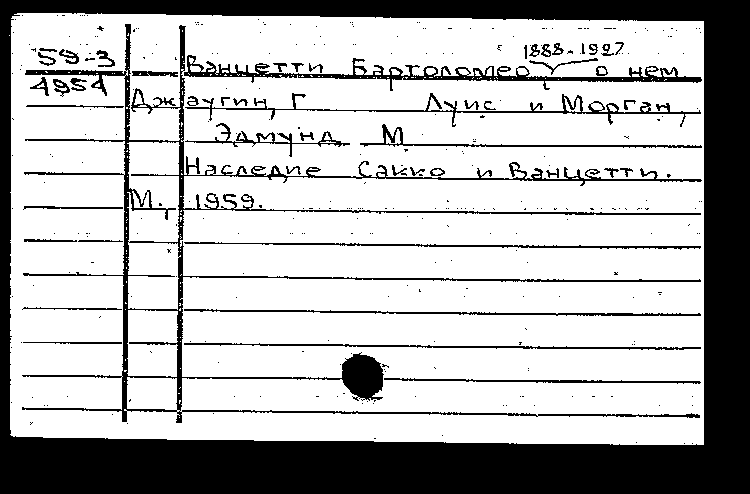 1888-1927
59-3 Ванцетти Бартоломео, о нем
4954 Джаугин, Г Луис и Морган,
Эдмунд М.
Наследие Сакко и Ванцетти.
М., 1959.